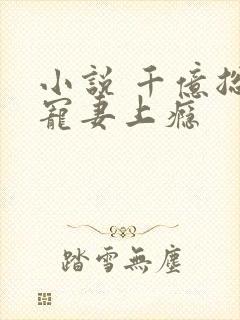 小說 千億
寵妻上癮
踏雪無塵